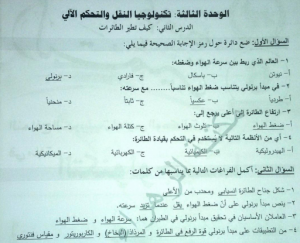 الوحدة الثالثة: تكنولوجيا النقل والتحكم الآلي
الدرس الثاني: كيف تطير الطائرات
السؤال الأول: ضع دائرة حول رمز الإجابة الصحيحة فيما يلي:
١- العالم الذي ربط بين سرعة الهواء وضغطه:
أ- نيوتن ب- باسكال ج- فارادي د- برنولي
٢- في مبدأ برنولي يتناسب ضغط الهواء تناسباً مع سرعته:
أ- طردياً ب- عكسياً ج- ثابتاً د- منحنياً
٣- ارتفاع الطائرة إلى أعلى يرجع إلى:
أ- ضغط الهواء ب- تلوث الهواء ج- كتلة الهواء د- مساحة الهواء
٤- أي من الأنظمة التالية يستخدم في التحكم بقيادة الطائرة:
أ- الهيدروليكية ج- الكهربائية د- الميكانيكية
السؤال الثاني: أكمل الفراغات التالية بما يناسبها من كلمات:
١- شكل جناح الطائرة انسيابي ومحدب من الأعلى
٢- ينص مبدأ برنولي على أن ضغط الهواء يقل عندما تزيد سرعته
٣- العاملان الأساسيان في تحقيق مبدأ برنولي في الطيران هما سرعة الهواء و ضغط الهواء
٤- من التطبيقات على مبدأ برنولي قوة الرفع في الطائرة و المرذاذ (البخاخ) و الكاربوريتور و مقياس فنتوري